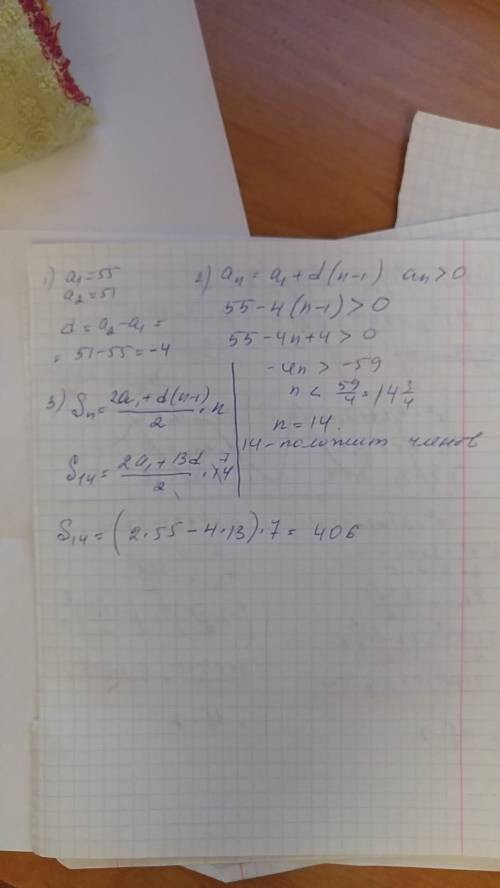 1) a₁=55
a₂=51
d = a₂-a₁ =
= 51-55=-4
2) aₙ = a₁+d(n-1) aₙ>0
55-4(n-1)>0
55-4n+4>0
-4n > -59
n < 59/4 = 14 3/4
n = 14.
14-положит членов
3) Sₙ = (2a₁+d(n-1))/2 · n
S₁₄ = (2a₁+13d)/2 · 14 7
S₁₄=(2·55-4·13)·7= 406